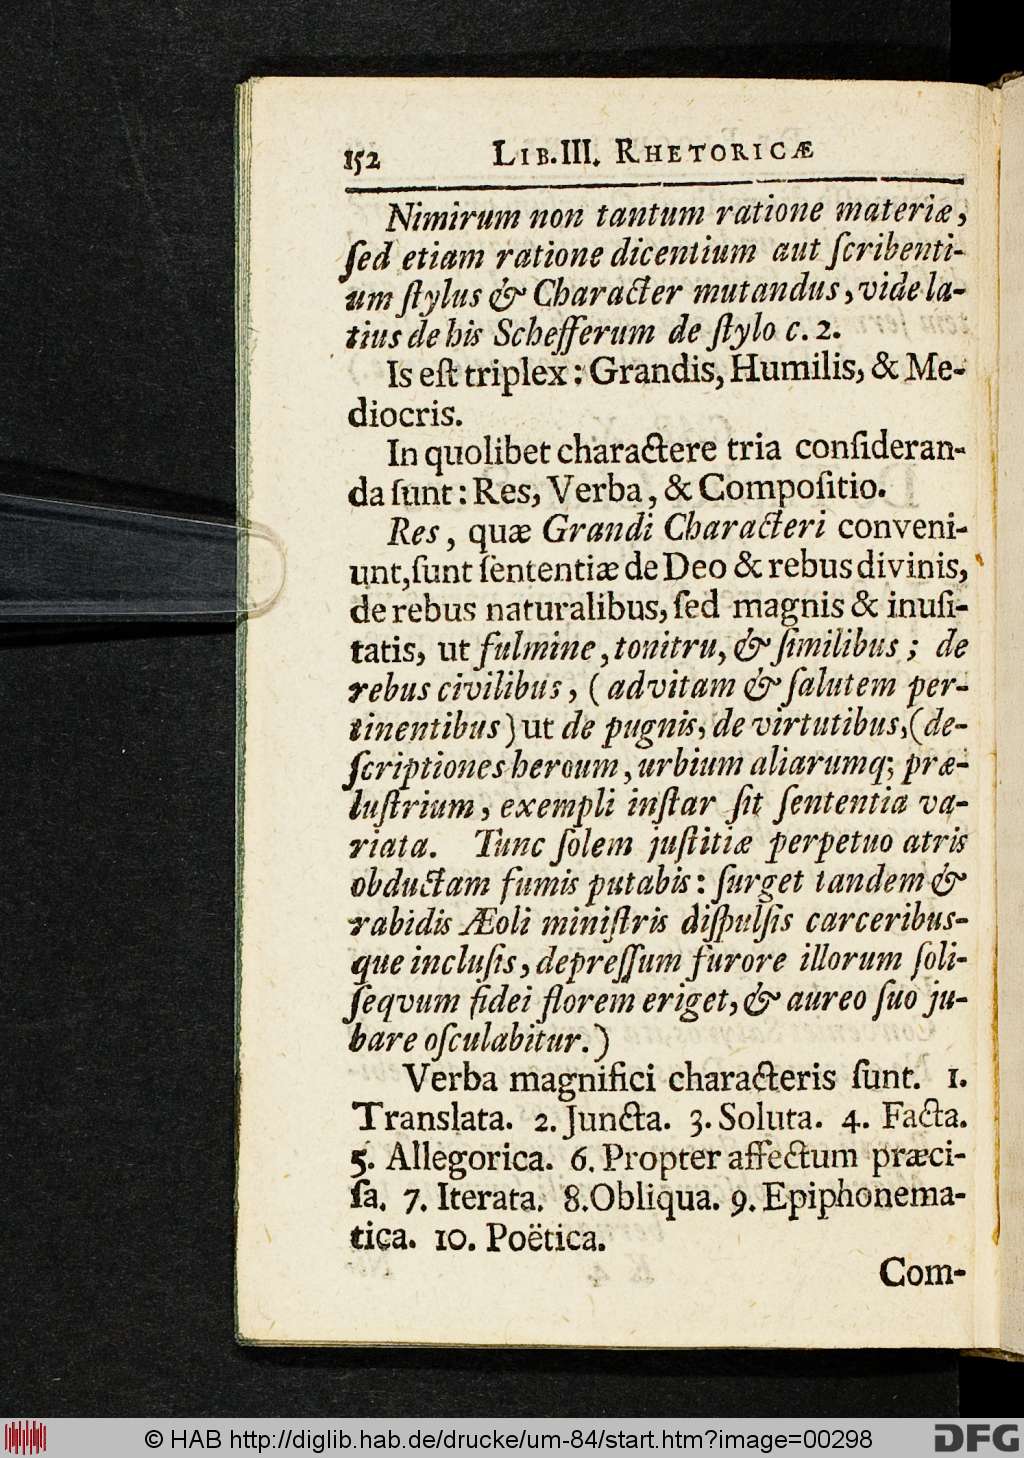 152 LIB.III. RHETORICÆ
Nimirum non tantum ratione materiæ,
ſed etiam ratione dicentium aut ſcribenti-
um ſtylus & Character mutandus, vide la-
tius de his Schefferum de ſtylo c. 2.
Is eſt triplex: Grandis, Humilis, & Me-
diocris.
In quolibet charactere tria conſideran-
da ſunt: Res, Verba, & Compoſitio.
Res, quæ Grandi Characteri conveni-
unt, ſunt ſententiæ de Deo & rebus divinis,
de rebus naturalibus, ſed magnis & inuſi-
tatis, ut fulmine, tonitru, & ſimilibus; de
rebus civilibus, (ad vitam & ſalutem per-
tinentibus) ut de pugnis, de virtutibus, (de-
ſcriptiones heroum, urbium aliarumq; præ-
luſtrium, exempli inſtar ſit ſententia va-
riata. Tunc ſolem juſtitiæ perpetuo atris
obductam fumis putabis: ſurget tandem &
rabidis Æoli miniſtris diſpulſis carceribus-
que incluſis, depreſſum furore illorum ſoli-
ſeqvum fidei florem eriget, & aureo ſuo ju-
bare oſculabitur.)
Verba magnifici characteris ſunt. 1.
Translata. 2. Juncta. 3. Soluta. 4. Facta.
5. Allegorica. 6. Propter affectum præci-
ſa. 7. Iterata. 8. Obliqua. 9. Epiphonema-
tica. 10. Poëtica.
Com-
© HAB http://diglib.hab.de/drucke/um-84/start.htm?image=00298
DFG